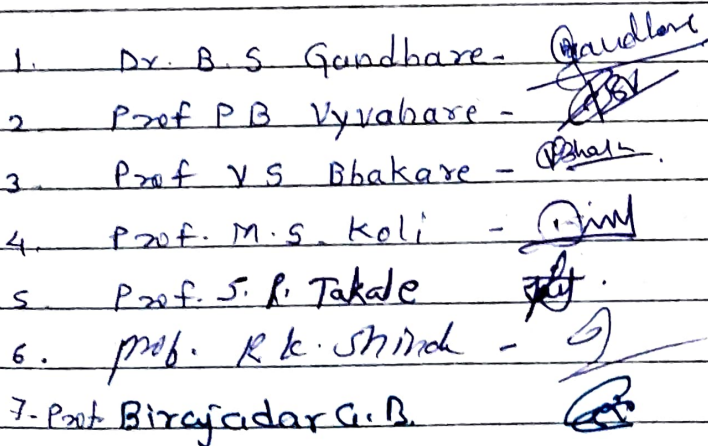 1. Dr. B. S Gandhare - Gandhare
2 Prof P B Vyvahare -
3 Prof V S Bhakare -
4. Prof. M. S. Koli -
5 Prof. S. R. Takale
6. Prof. R K. Shinde -
7- Prof. Birajadar G. B.